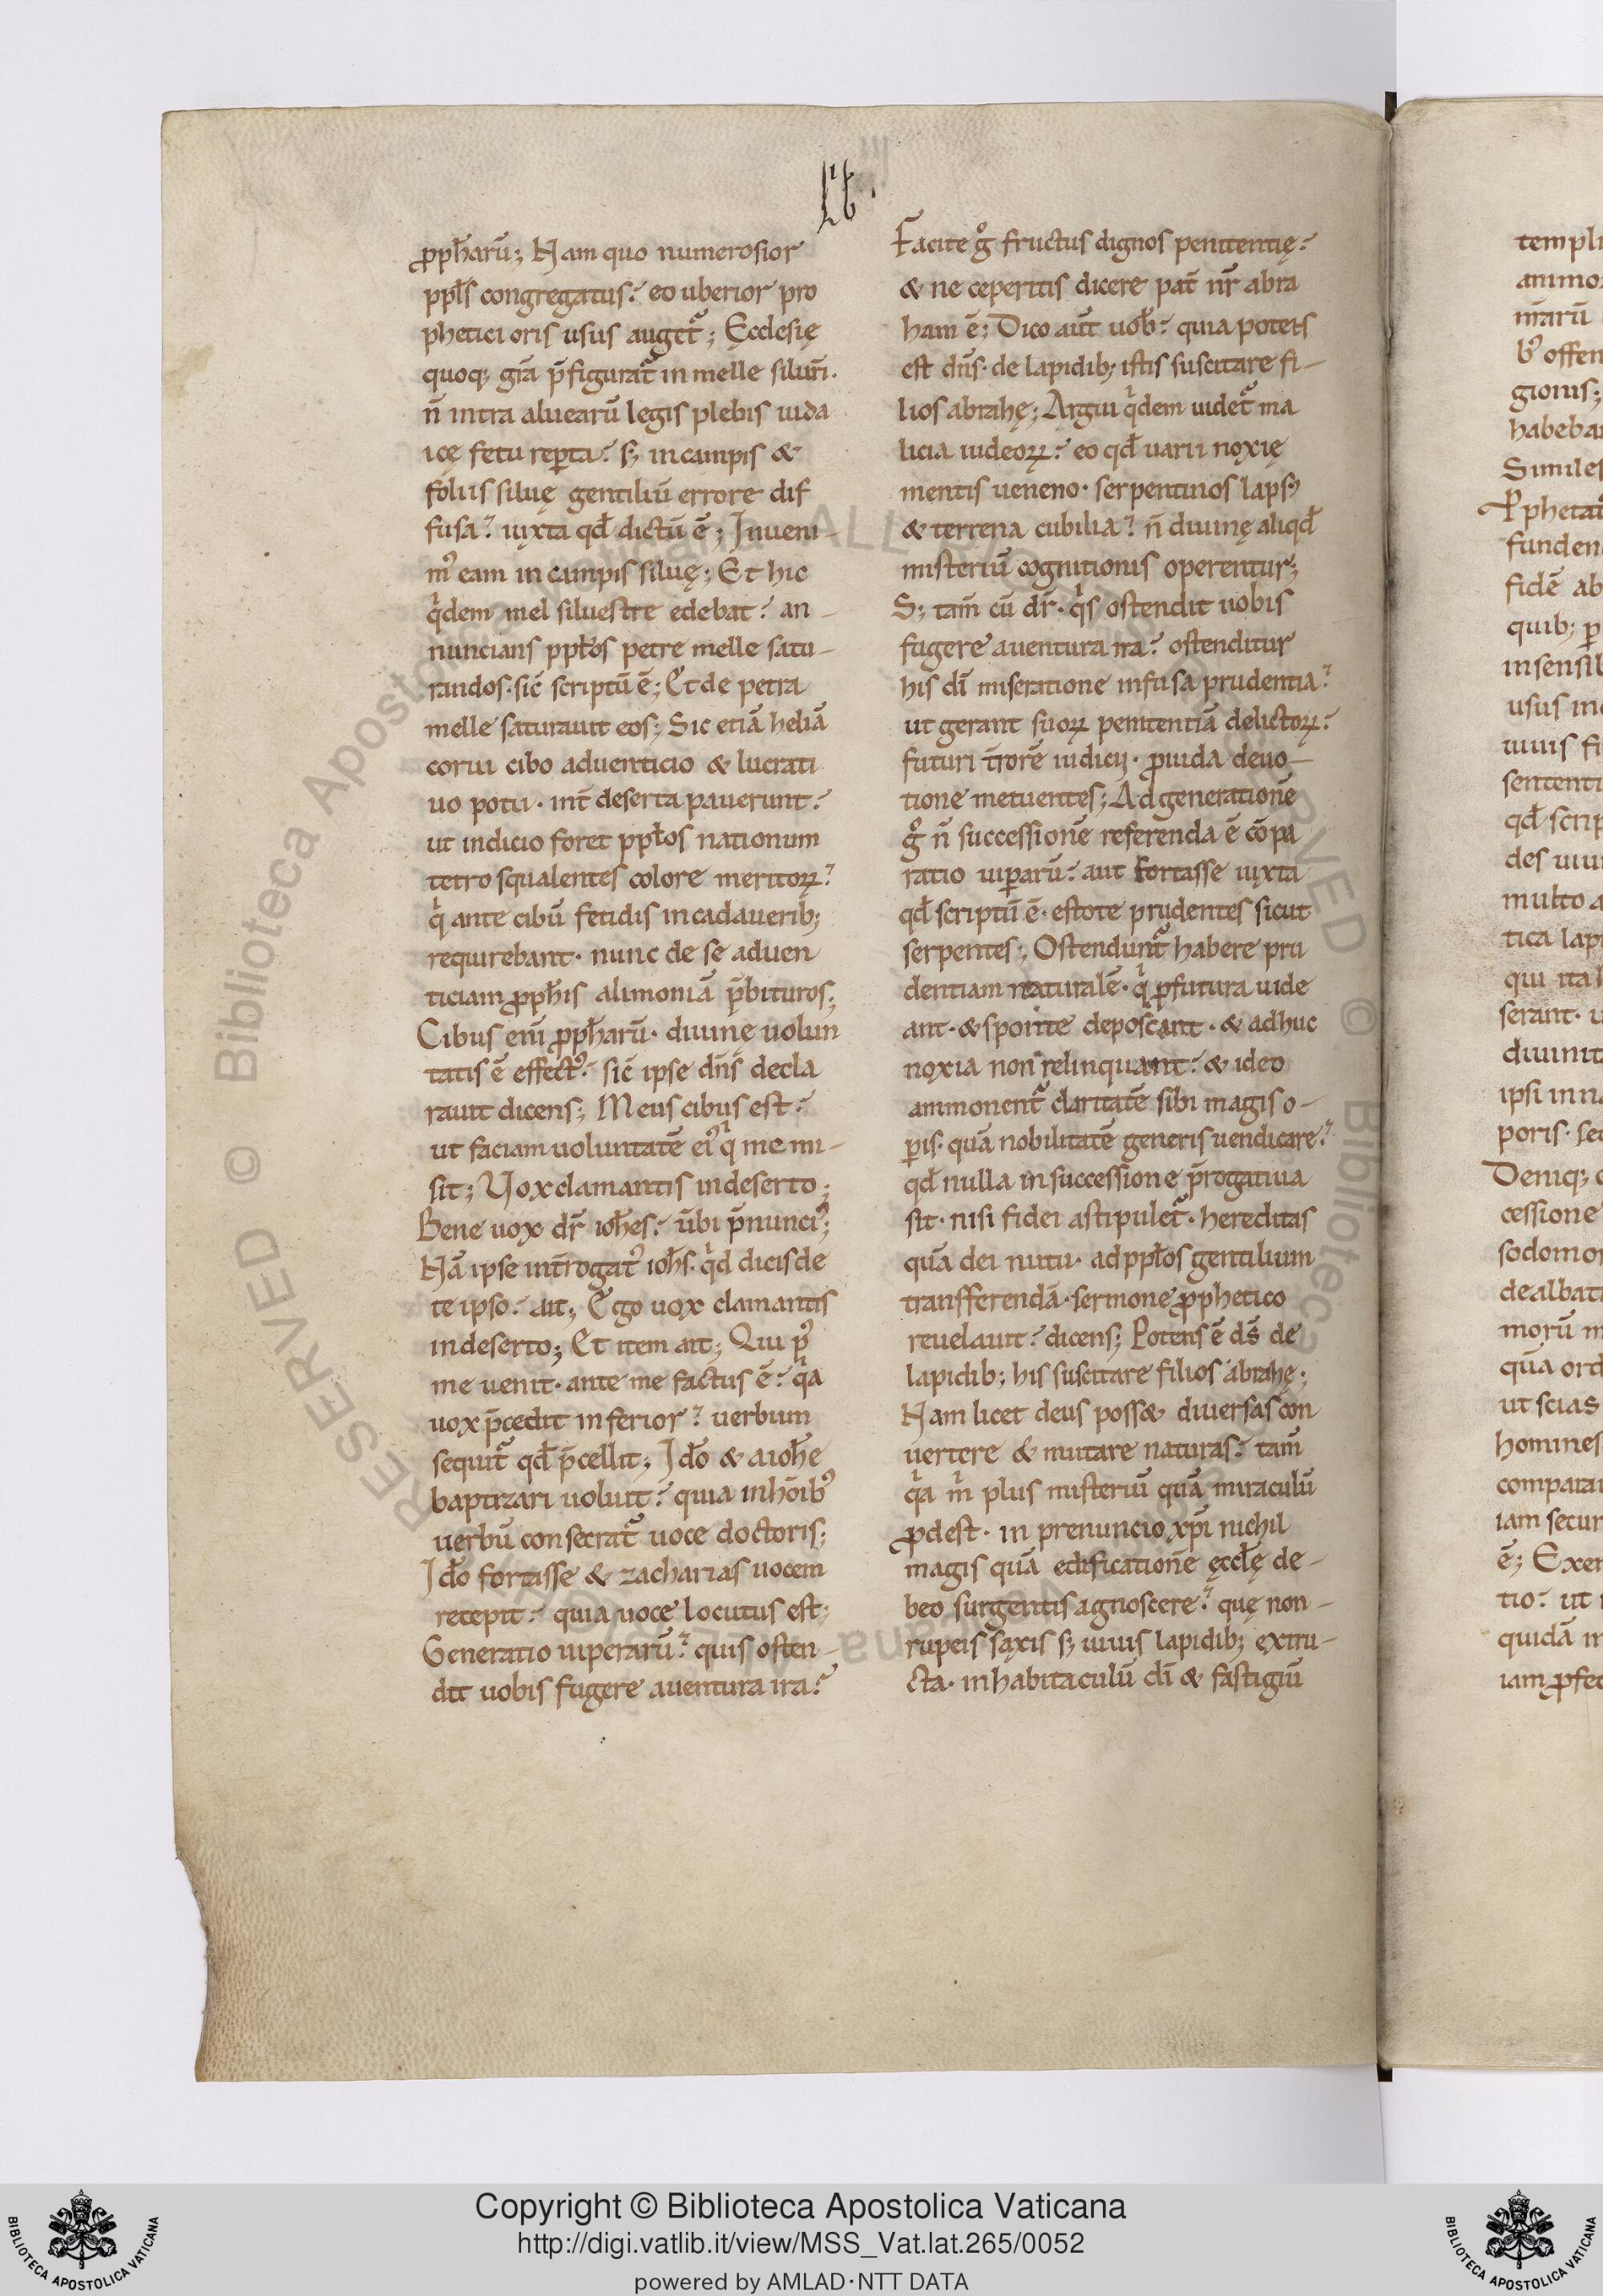 Li̅b.
p̱ph̅aru̅; Nam quo numerosior
pp̅ls congregatus? eo uberior pro
phetici oris usus auget᷑; Ecclesię
quoq; gr̅a p̅figurat᷑ in melle siluri̅.
n̅ intra aluearu̅ legis plebis iuda
icę fetu rep̱ta? s; in campis &
foliis siluę gentiliu̅ errore dif
fusa? iuxta qd̅ dictu̅ e̅; Inueni-
m᷒ eam in campis siluę; Et hic
qͥdem mel siluestre edebat? an-
nuncians ppl̅os petre melle satu-
randos. sic̅ scriptu̅ e̅; Et de petra
melle saturauit eos; Sic etia̅ helia̅
corui cibo aduenticio & lucrati
uo potu. int̅ deserta pauerunt?
ut indicio foret ppl̅os nationum
tetro squalentes colore meritoꝝ?
qͥ ante cibu̅ fetidis in cadauerib;
requirebant. nunc de se aduen
ticiam p̱ph̅is alimonia̅ p̅bituros;
Cibus eni̅ p̱ph̅aru̅. diuinę uolun
tatis e̅ effect᷒? sic̅ ipse dn̅s decla
rauit dicens; Meus cibus est?
ut faciam uoluntate̅ ei᷒ qͥ me mi-
sit; Vox clamantis in deserto;
Bene uox dr̅ ioh̅es? u̅bi p̅nunci᷒;
Na̅ ipse int̅rogat᷒ ioh̅s. qͥd dicis de
te ipso? ait; Ego uox clamantis
in deserto; Et item ait; Qui p᷒
me uenit. ante me factus e̅? qͥa
uox p̅cedit inferior? uerbum
sequit᷑ qd̅ p̅cellit; Id̅o & a ioh̅e
baptizari uoluit? quia in ho̅ib᷒
uerbu̅ consecrat᷑ uoce doctoris;
Id̅o fortasse & zacharias uocem
recepit? quia uoce locutus est;
Generatio uiperaru̅? quis osten-
dit uobis fugere a uentura ira?
Facite gͦ fructus dignos penitentię?
& ne ceperitis dicere pat̅ nr̅ abra
ham e̅; Dico aut̅ uob̅? quia potens
est dn̅s. de lapidib; istis suscitare fi-
lios abrahę; Argui qͥdem uidet᷑ ma
licia iudeoꝝ? eo qd̅ uarii noxię
mentis ueneno. serpentinos laps᷒
& terrena cubilia? n̅ diuinę aliqd̅
misteriu̅ cognitionis operentur;
S; tam̅ cu̅ dr̅. qͥs ostendit uobis
fugere a uentura ira? ostenditur
his di̅ miseratione infusa prudentia?
ut gerant suoꝝ penitentia̅ delictoꝝ?
futuri t̅rore̅ iudicij. p̱uida deuo-
tione metuentes; Ad generatione̅
gͦ n̅ successione̅ referenda e̅ co̅pa
ratio uip̱aru̅? aut fortasse iuxta
qd̅ scriptu̅ e̅. estote prudentes sicut
serpentes; Ostendunt᷑ habere pru
dentiam naturale̅. qͥ p̱futura uide
ant. & sponte deposcant. & adhuc
noxia non relinquant? & ideo
ammonent᷑ claritate̅ sibi magis o-
p̱is. qua̅ nobilitate̅ generis uendicare?
qd̅ nulla in successione p̅rogatiua
sit. nisi fidei astipulet᷑. hereditas
qua̅ dei nutu. ad ppl̅os gentilium
transferenda̅. sermone p̱phetico
reuelauit? dicens; Potens e̅ ds̅ de
lapidib; his suscitare filios abrahę;
Nam licet deus poss& diuersas con
uertere & mutare naturas? tam̅
qͥa mͥ plus misteriu̅ qua̅ miraculu̅
p̱dest. in prenuncio xp̅i nichil
magis qua̅ edificatione̅ ęccl̅ę de-
beo surgentis agnoscere? quę non-
rupeis saxis s; uiuis lapidib; extru-
cta. in habitaculu̅ di̅ & fastigiu̅
templi
animo
m̅aru̅
b᷒ offen
gionis;
habeba
Similes
P̱pheta
funden
fide̅ ab
quib; p̱
insensib
usus in
uiuis fi
sententi
qd̅ scrip
des uiui
multo a
tica lapi
qui ita l
serant. u
diuinit
ipsi in na
poris. sed
Deniq;
cessione
sodomo
dealbat
moru̅ m
qua̅ ord
ut scias
homines
compara
iam secur
e̅; Exem
tio? ut
quida̅ in
iam p̱fec
Copyright © Biblioteca Apostolica Vaticana
http://digi.vatlib.it/view/MSS_Vat.lat.265/0052
powered by AMLAD·NTT DATA
BIBLIOTECA APOSTOLICA VATICANA
BIBLIOTECA APOSTOLICA VATICANA